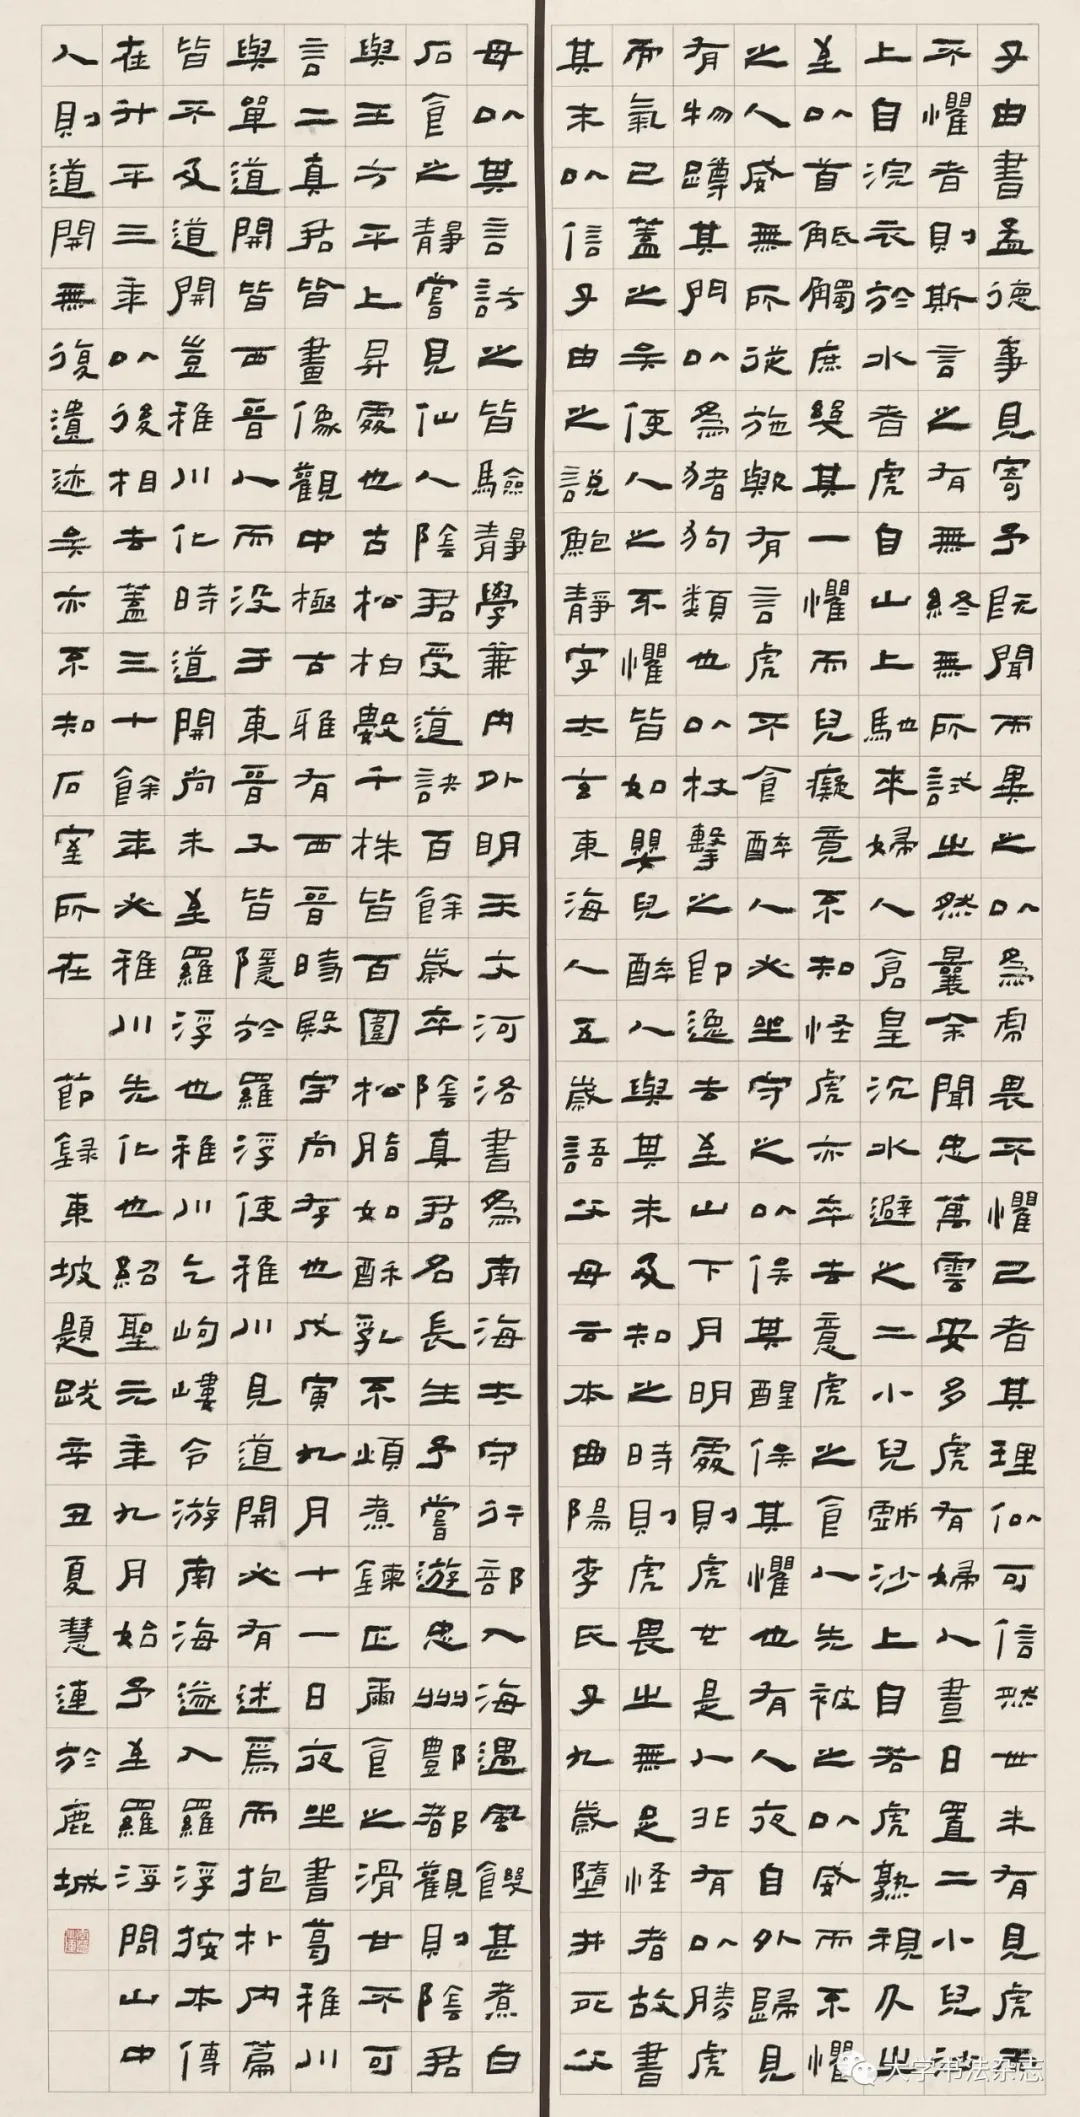 子由書孟德事見寄予既聞而異之以為虎畏不懼己者其理似可信然世未有見虎而
不懼者則斯言之有無終無所試之然曩余聞忠萬雲安多虎有婦人晝日置二小兒沙
上自浣衣於水者虎自山上馳來婦人倉皇沉水避之二小兒戲沙上自若虎熟視久之
至以首觝觸庶幾其一懼而兒癡竟不知怪虎亦卒去意虎之食人先被之以威而不懼
之人威無所從施歟有言虎不食醉人必坐守之以俟其醒俟其懼也有人夜自外歸見
有物蹲其門以為猪狗類也以杖擊之即逸去至山下月明處則虎也是人非有以勝虎
而氣已蓋之矣使人之不懼皆如嬰兒醉人與其未及知之時則虎畏之無足怪者故書
其末以信子由之說鮑靜字太玄東海人五歲語父母云本曲陽李氏子九歲墮井死父
母以其言訪之皆驗靜學兼內外明天文河洛書為南海太守行部入海遇風饑甚煮白
石食之靜嘗見仙人陰君受道訣百餘歲卒陰真君名長生予嘗遊忠州酆都觀則陰君
與王方平上昇處也古松柏數千株皆百圍松脂如酥乳不煩煮鍊正爾食之滑甘不可
言二真君皆畫像觀中極古雅有西晉時殿宇尚存也戊寅九月十一日夜坐書葛稚川
與單道開皆西晉人而沒于東晉又皆隱於羅浮使稚川見道開必有述焉而抱朴內篇
皆不及道開豈稚川化時道開尚未至羅浮也稚川乞岣嶁令游南海遂入羅浮按本傳
在升平三年以後相去蓋三十餘年必稚川先化也紹聖元年九月始予至羅浮問山中
人則道開無復遺迹矣亦不知石室所在 節錄東坡題跋辛丑夏慧連於鹿城
大学书法杂志